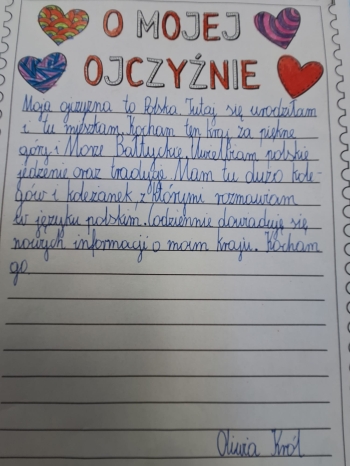 O MOJEJ
OJCZYŹNIE
Moja ojczyzna to Polska. Tutaj się urodziłam
i tu mieszkam. Kocham ten kraj za piękne
góry i Morze Bałtyckie. Uwielbiam polskie
jedzenie oraz tradycje. Mam tu dużo kole-
gów i koleżanek, z którymi rozmawiam
w języku polskim. Codziennie dowiaduję się
nowych informacji o moim kraju. Kocham
go
Oliwia Król